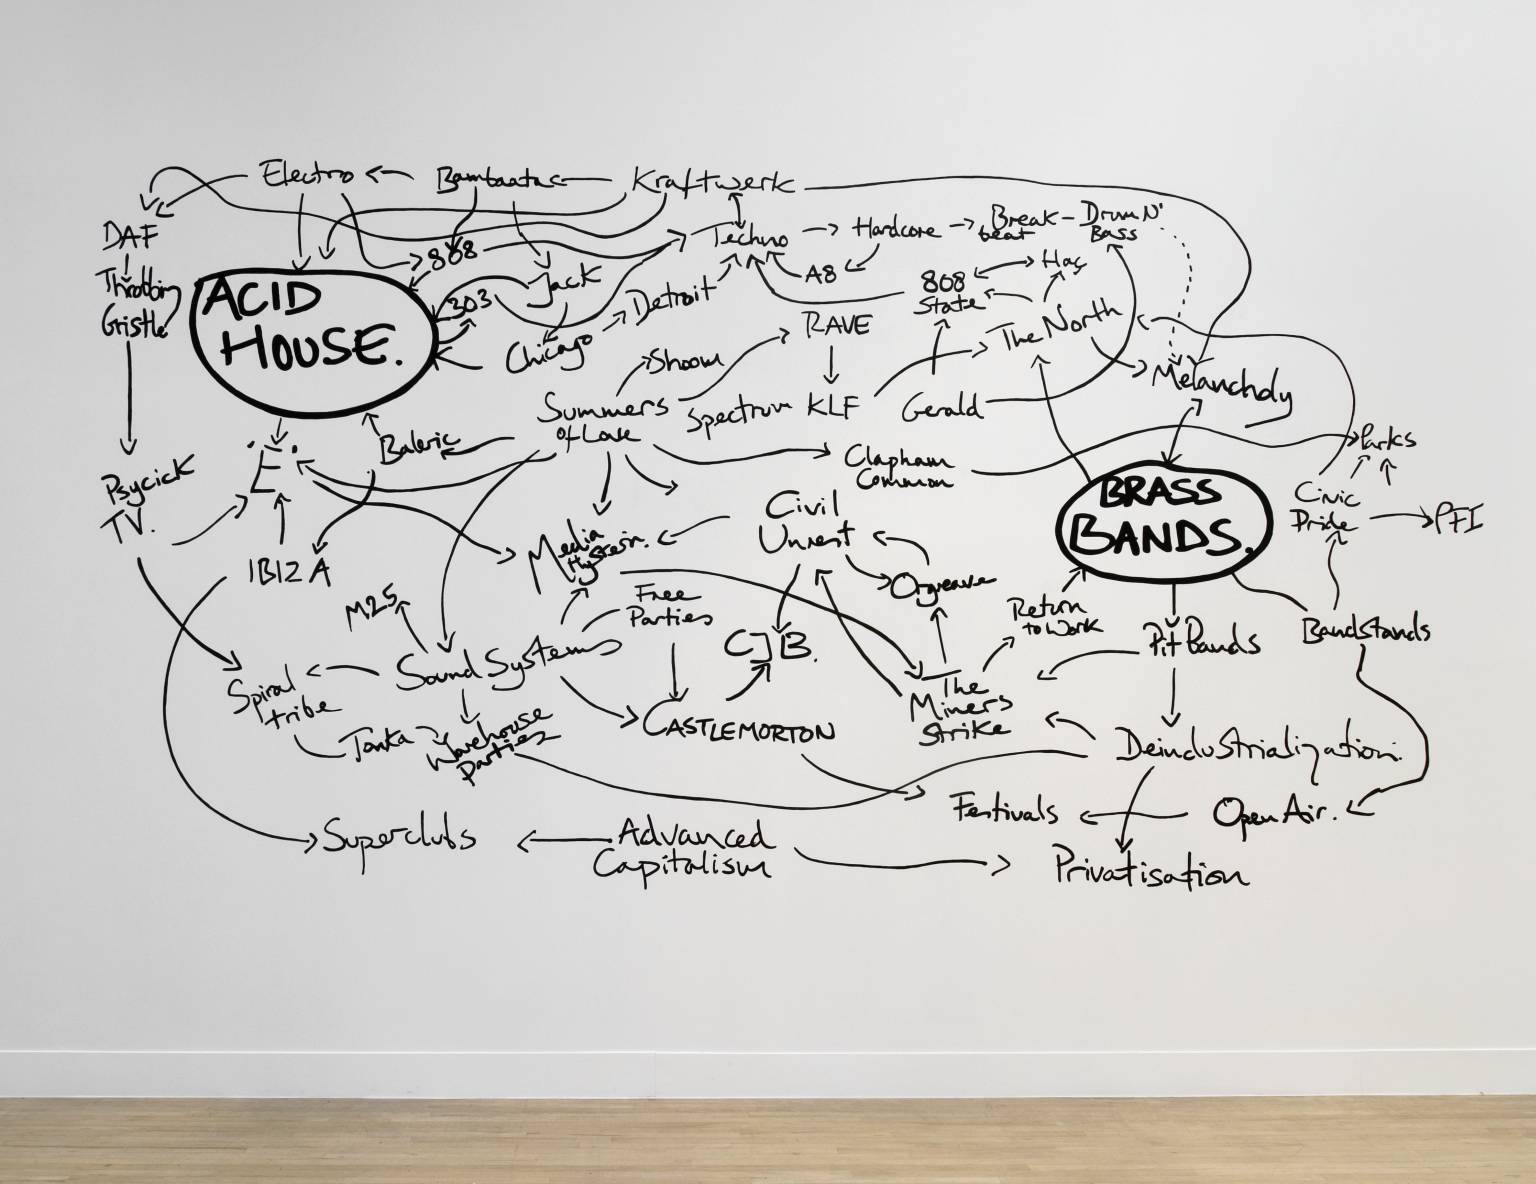 Electro
Bambaata
Kraftwerk
DAF
Throbbing
Gristle
808
Techno
Hardcore
Break
beat
Drum N'
Bass
ACID
HOUSE.
303
Jack
Detroit
A8
808
State
Haç
Chicago
RAVE
The North
Shoom
Melancholy
Summers
of Love
Spectrum
KLF
Gerald
Baleric
'E'
Parks
Psycick
TV.
Clapham
Common
BRASS
BANDS.
Civic
Pride
PFI
Civil
Unrest
Media
Hysteria.
IBIZA
Orgreave
M25
Free
Parties
Return
to Work
CJB.
Pit Bands
Bandstands
Sound Systems
Spiral
tribe
The
Miners
Strike
CASTLEMORTON
Tonka
Warehouse
parties
Deindustrialization.
Festivals
Open Air.
Superclubs
Advanced
Capitalism
Privatisation